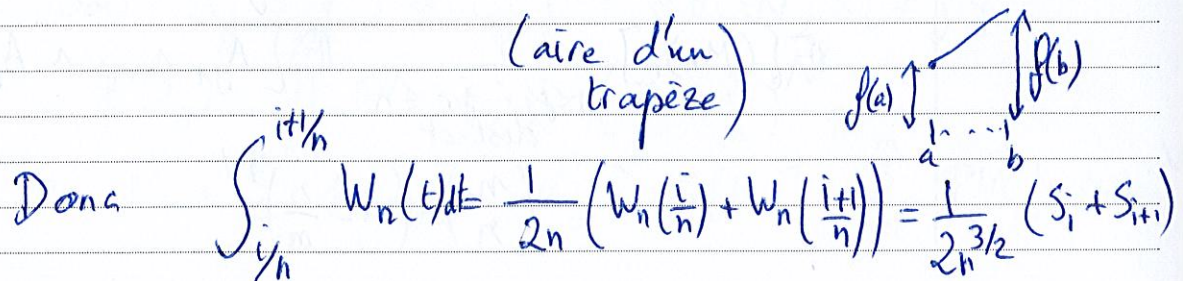 (aire d'un
trapèze)
f(a) f(b)
a b
Donc ∫_{i/n}^{i+1/n} W_n(t)dt = \frac{1}{2n} (W_n(\frac{i}{n}) + W_n(\frac{i+1}{n})) = \frac{1}{2n^{3/2}} (S_i + S_{i+1})